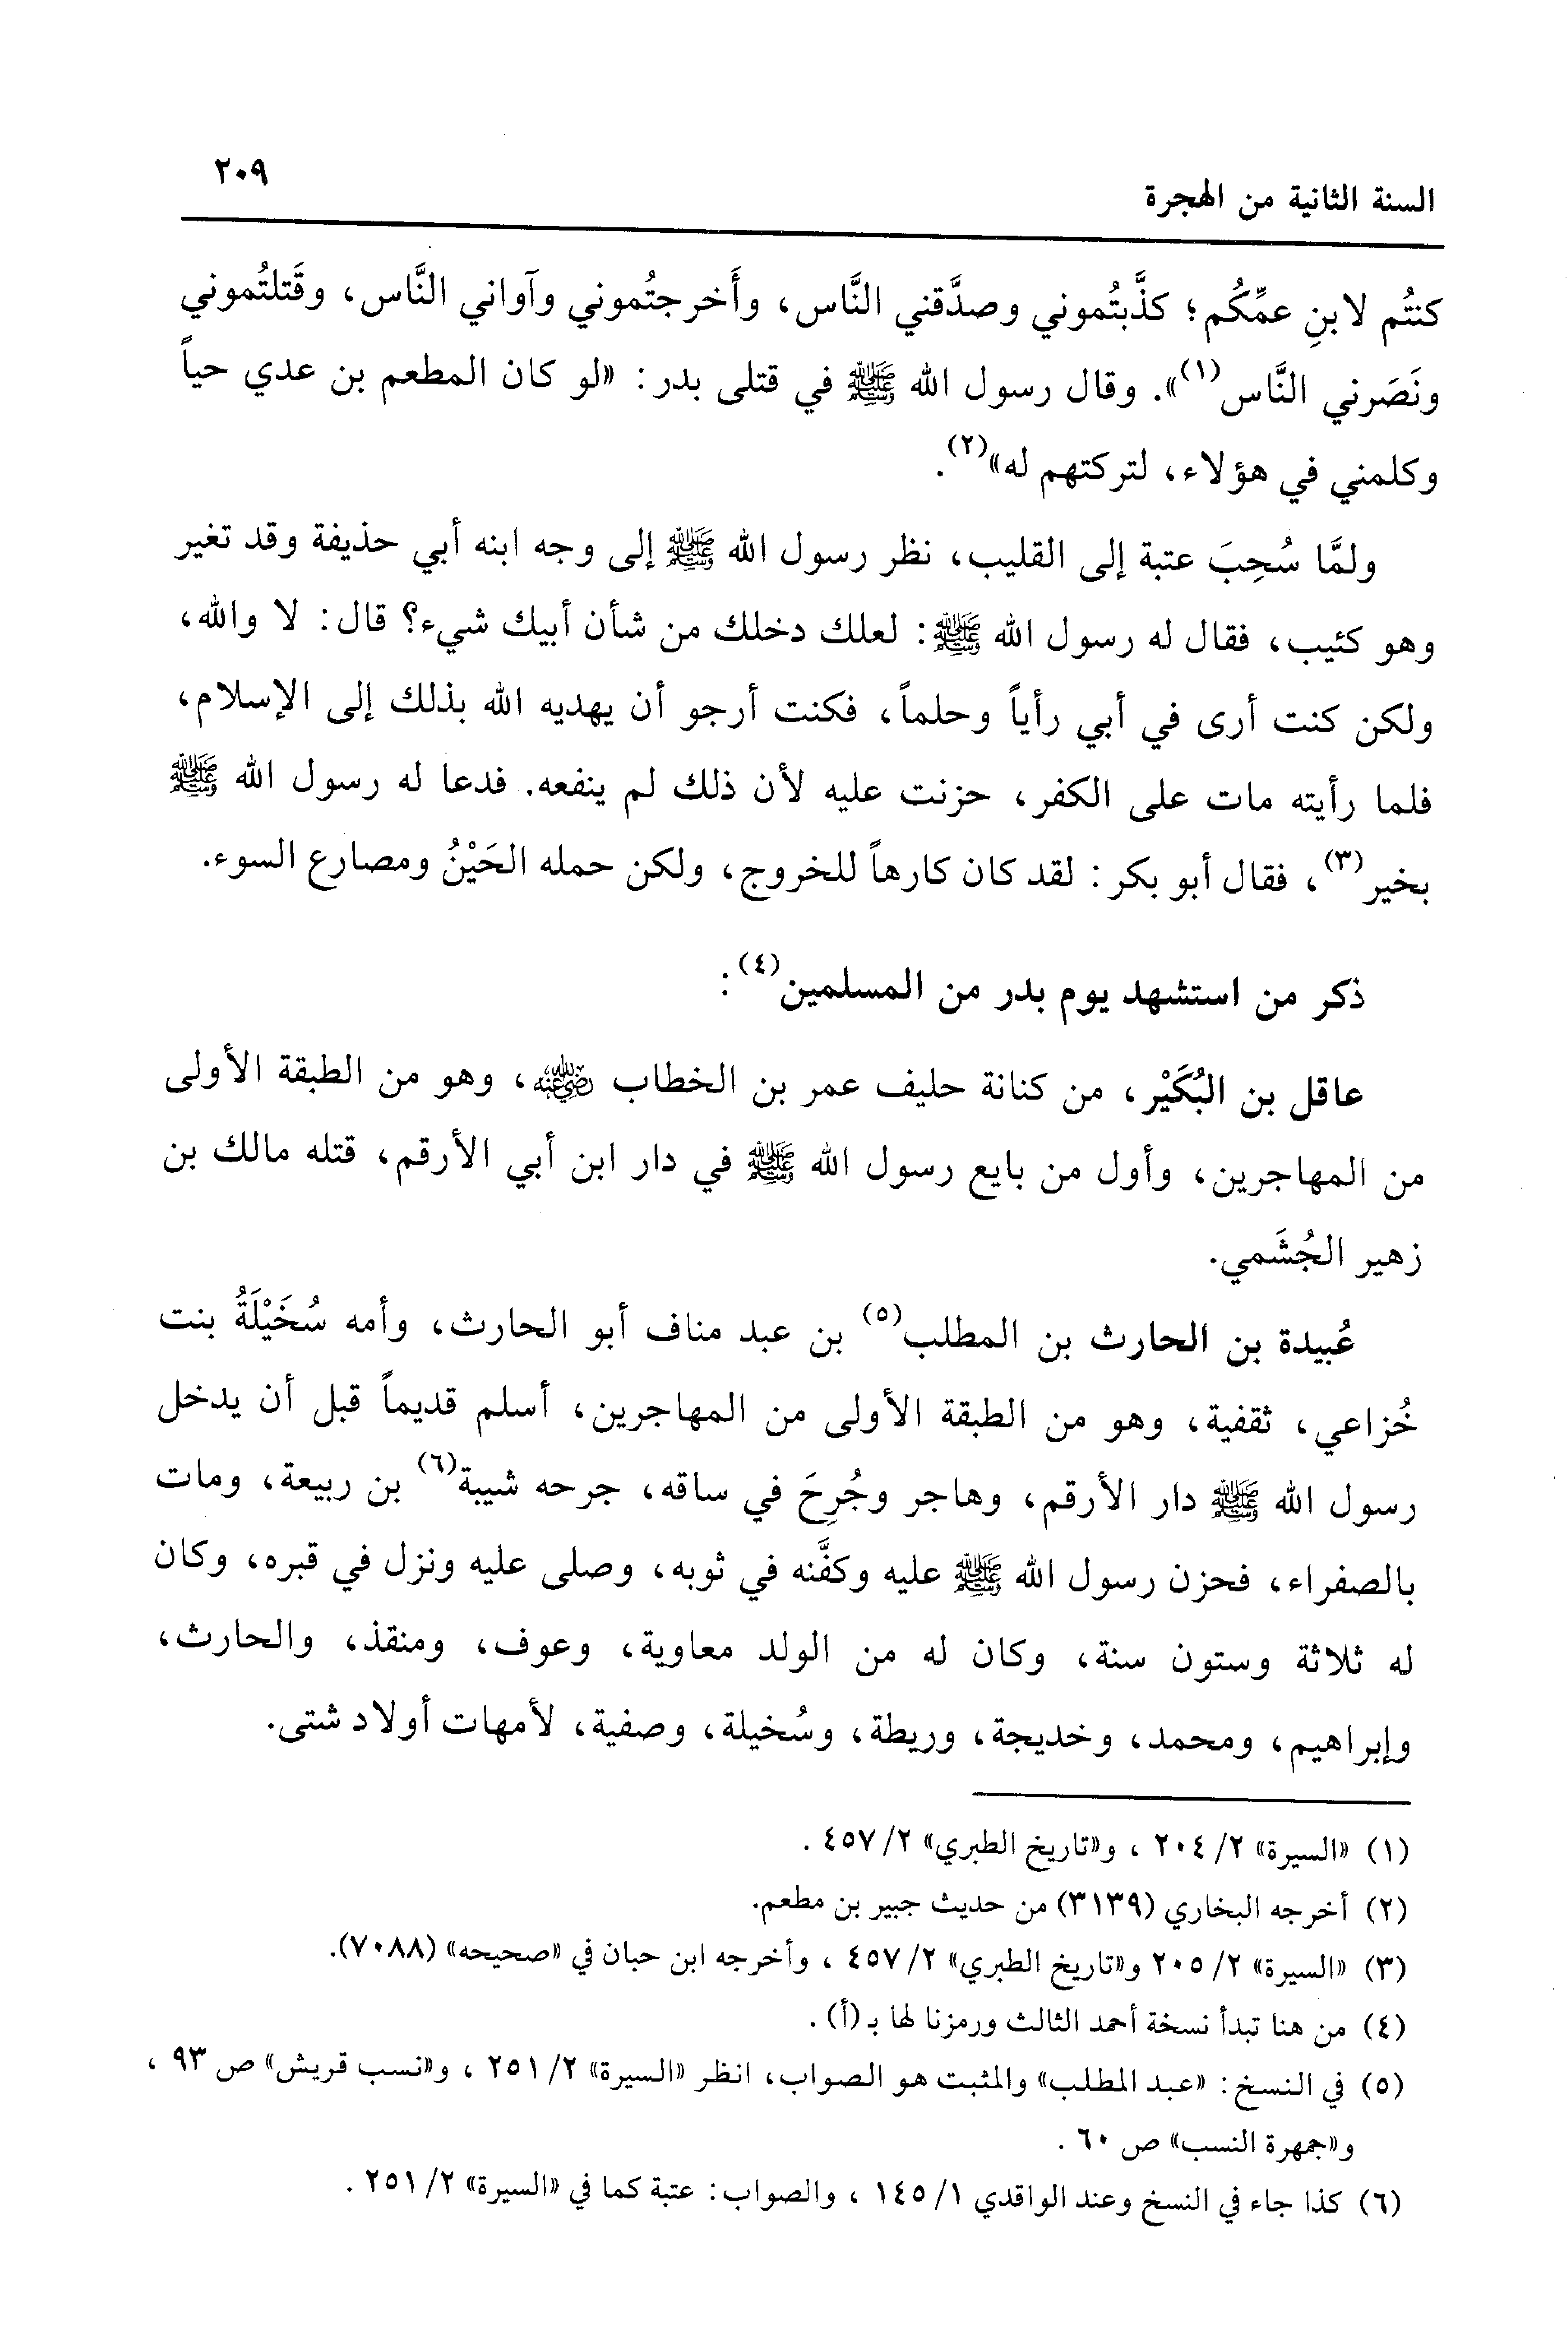 السنة الثانية من الهجرة
٢٠٩
كنتُم لابنِ عمِّكُم؛ كذَّبتُموني وصدَّقني النَّاس، وأَخرجتُموني وآواني النَّاس، وقَتلتُموني
ونَصَرني النَّاس(١)». وقال رسول الله ﷺ في قتلى بدر: «لو كان المطعم بن عدي حياً
وكلمني في هؤلاء، لتركتهم له»(٢).
ولمَّا سُحِبَ عتبة إلى القليب، نظر رسول الله ﷺ إلى وجه ابنه أبي حذيفة وقد تغير
وهو كئيب، فقال له رسول الله ﷺ: لعلك دخلك من شأن أبيك شيء؟ قال: لا والله،
ولكن كنت أرى في أبي رأياً وحلماً، فكنت أرجو أن يهديه الله بذلك إلى الإسلام،
فلما رأيته مات على الكفر، حزنت عليه لأن ذلك لم ينفعه. فدعا له رسول الله ﷺ
بخير(٣)، فقال أبو بكر: لقد كان كارهاً للخروج، ولكن حمله الحَيْنُ ومصارع السوء.
ذكر من استشهد يوم بدر من المسلمين(٤):
عاقل بن البُكَيْر، من كنانة حليف عمر بن الخطاب رضي الله عنه، وهو من الطبقة الأولى
من المهاجرين، وأول من بايع رسول الله ﷺ في دار ابن أبي الأرقم، قتله مالك بن
زهير الجُشَمي.
عُبيدة بن الحارث بن المطلب(٥) بن عبد مناف أبو الحارث، وأمه سُخَيْلَةُ بنت
خُزاعي، ثقفية، وهو من الطبقة الأولى من المهاجرين، أسلم قديماً قبل أن يدخل
رسول الله ﷺ دار الأرقم، وهاجر وجُرِحَ في ساقه، جرحه شيبة(٦) بن ربيعة، ومات
بالصفراء، فحزن رسول الله ﷺ عليه وكفَّنه في ثوبه، وصلى عليه ونزل في قبره، وكان
له ثلاثة وستون سنة، وكان له من الولد معاوية، وعوف، ومنقذ، والحارث،
وإبراهيم، ومحمد، وخديجة، وريطة، وسُخيلة، وصفية، لأمهات أولاد شتى.
(١) «السيرة» ٢/ ٢٠٤ ، و«تاريخ الطبري» ٢/ ٤٥٧ .
(٢) أخرجه البخاري (٣١٣٩) من حديث جبير بن مطعم.
(٣) «السيرة» ٢/ ٢٠٥ و«تاريخ الطبري» ٢/ ٤٥٧ ، وأخرجه ابن حبان في «صحيحه» (٧٠٨٨).
(٤) من هنا تبدأ نسخة أحمد الثالث ورمزنا لها بـ(أ) .
(٥) في النسخ: «عبد المطلب» والمثبت هو الصواب، انظر «السيرة» ٢/ ٢٥١ ، و«نسب قريش» ص ٩٣ ،
و«جمهرة النسب» ص ٦٠ .
(٦) كذا جاء في النسخ وعند الواقدي ١/ ١٤٥ ، والصواب: عتبة كما في «السيرة» ٢/ ٢٥١ .